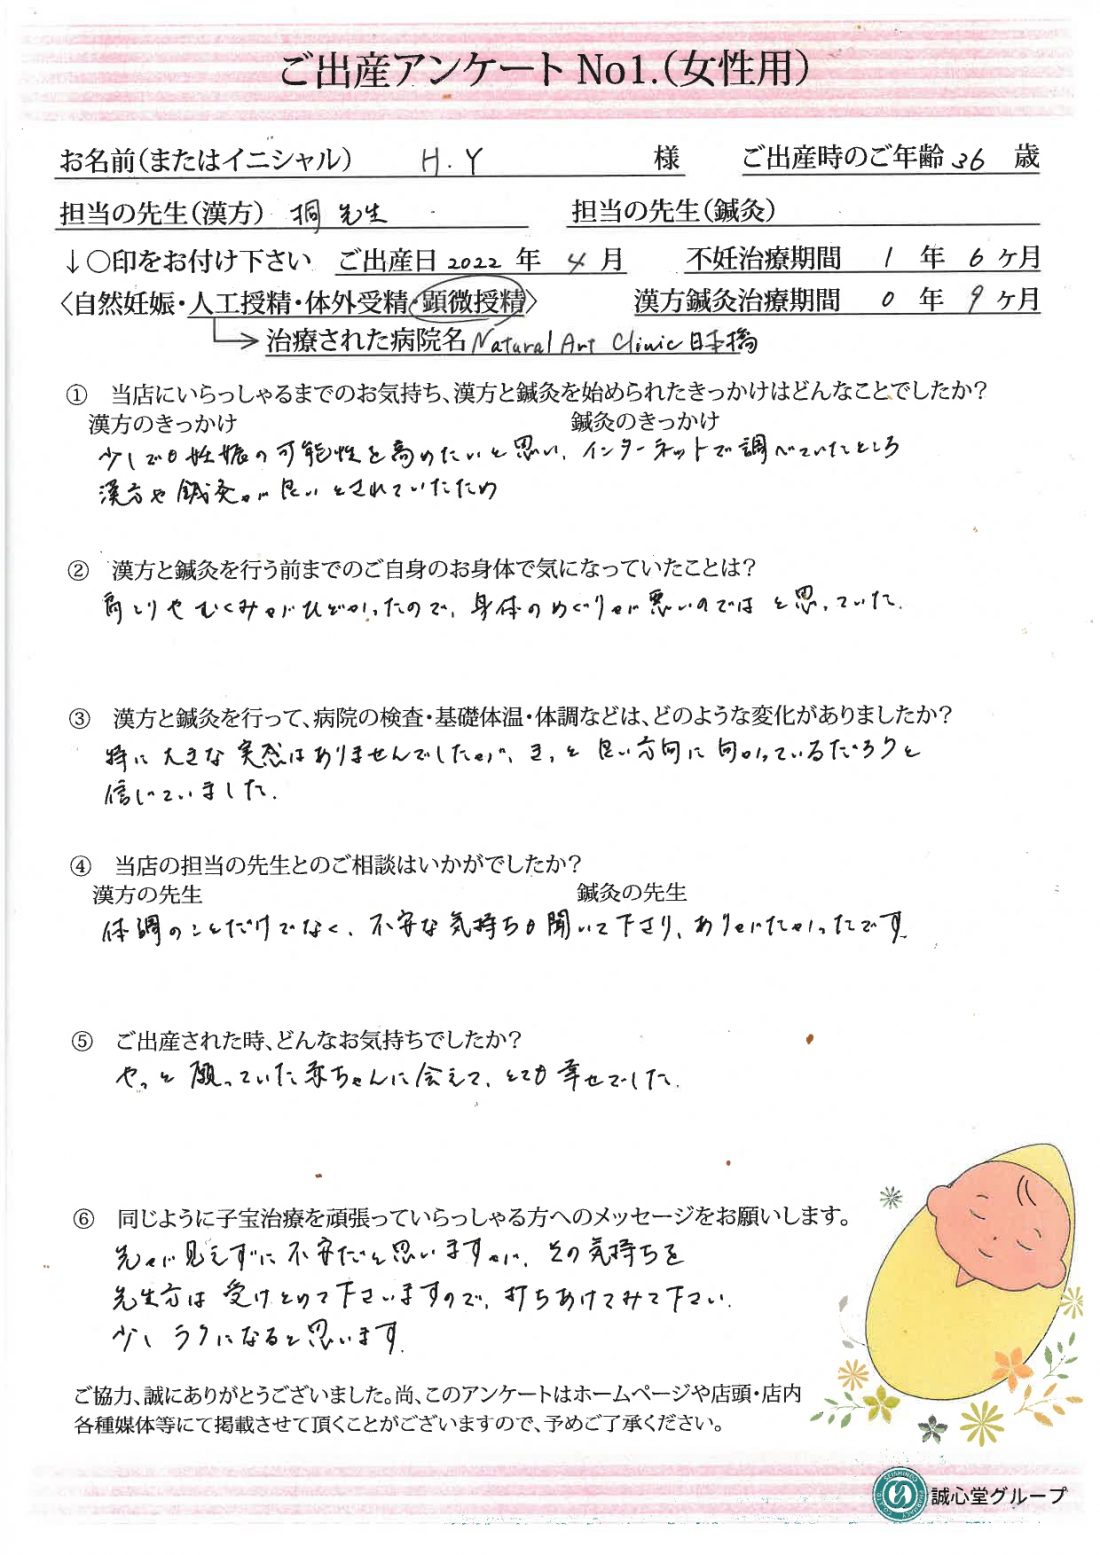 ご出産アンケート No1.(女性用)
お名前(またはイニシャル) H.Y 様 ご出産時のご年齢 36 歳
担当の先生(漢方) 桐 先生 担当の先生(鍼灸)
↓○印をお付け下さい ご出産日 2022 年 4 月 不妊治療期間 1 年 6 ヶ月
〈自然妊娠・人工授精・体外受精・顕微授精〉 漢方鍼灸治療期間 0 年 9 ヶ月
治療された病院名 Natural Art Clinic 日本橋
① 当店にいらっしゃるまでのお気持ち、漢方と鍼灸を始められたきっかけはどんなことでしたか?
漢方のきっかけ 鍼灸のきっかけ
少しでも妊娠の可能性を高めたいと思い、インターネットで調べていたところ
漢方や鍼灸が良いとされていたため
② 漢方と鍼灸を行う前までのご自身のお身体で気になっていたことは?
肩こりやむくみがひどかったので、身体のめぐりが悪いのではと思っていた。
③ 漢方と鍼灸を行って、病院の検査・基礎体温・体調などは、どのような変化がありましたか?
特に大きな実感はありませんでしたが、きっと良い方向に向かっているだろうと
信じていました。
④ 当店の担当の先生とのご相談はいかがでしたか?
漢方の先生 鍼灸の先生
体調のことだけでなく、不安な気持ちも聞いて下さり、ありがたかったです。
⑤ ご出産された時、どんなお気持ちでしたか?
やっと願っていた赤ちゃんに会えて、とても幸せでした。
⑥ 同じように子宝治療を頑張っていらっしゃる方へのメッセージをお願いします。
先が見えずに不安だと思いますが、その気持ちを
先生方は受けとめて下さいますので、打ちあけてみて下さい。
少しラクになると思います。
ご協力、誠にありがとうございました。尚、このアンケートはホームページや店頭・店内
各種媒体等にて掲載させて頂くことがございますので、予めご了承ください。
誠心堂グループ